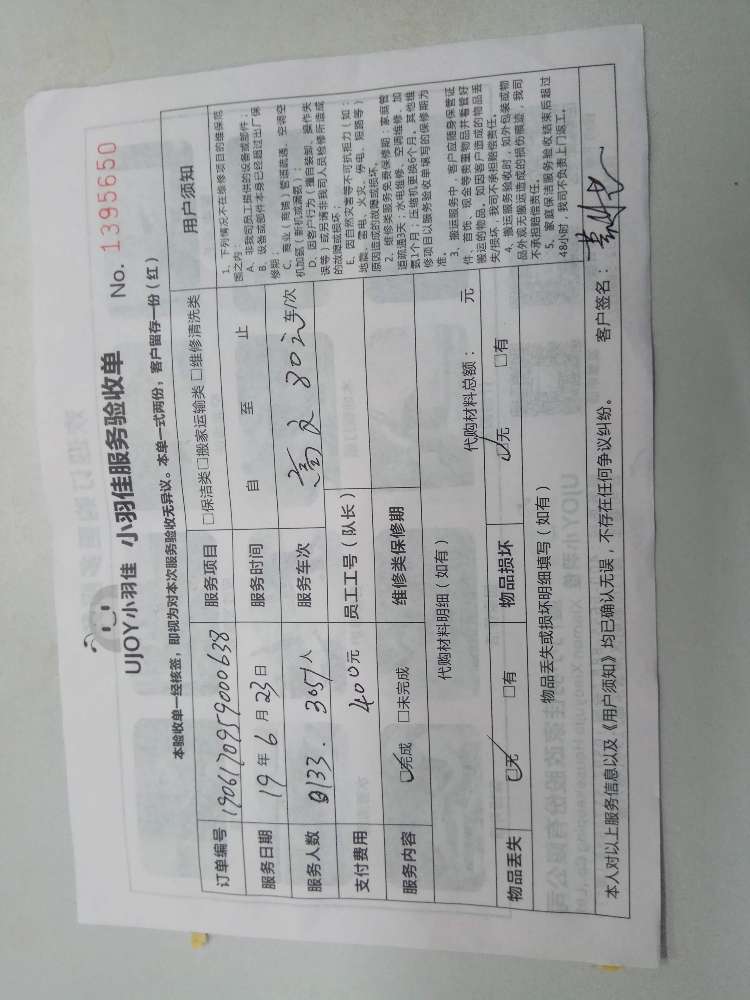 UJOY小羽佳 小羽佳服务验收单 No. 1395650
本验收单一经核签，即视为对本次服务验收无异议。本单一式两份，客户留存一份（红）
订单编号 1906170959000638 服务项目 □保洁类□搬家运输类□维修清洗类
服务日期 19年6月23日 服务时间 自 至 止
服务人数 0133. 3051人 服务车次 802车/次
支付费用 400元 员工工号（队长）
服务内容 ☑完成 □未完成 维修类保修期
代购材料明细（如有） 代购材料总额： 元
物品丢失 ☑无 □有 物品损坏 ☑无 □有
物品丢失或损坏明细填写（如有）
用户须知
1、下列情况不在维修项目的维保范
围之内：
A、非我司员工提供的设备或部件；
B、设备或部件本身已经超过出厂保
修期；
C、商业（商铺）管道疏通、空调空
机加氨（新机或漏氨）；
D、因客户行为（擅自装卸、操作失
误等）或另请非我司人员检修所造成
的故障或损坏；
E、因自然灾害等不可抗拒力（如：
地震、雷电、火灾、停电、短路等）
原因造成的故障或损坏。
2、维修类服务免费保修期：家庭管
道疏通3天；水电维修、空调维修、加
氨1个月；压缩机更换6个月。其他维
修项目以服务验收单填写的保修期为
准。
3、搬运服务中，客户应随身保管证
件、首饰、现金等贵重物品并看管好
搬运的物品。如因客户造成的物品丢
失/损坏，我司不承担赔偿责任。
4、搬运服务验收时，如外包装或物
品外观无搬运造成的损伤痕迹，我司
不承担赔偿责任。
5、家庭保洁服务验收结束后超过
48小时，我司不负责上门返工。
本人对以上服务信息以及《用户须知》均已确认无误，不存在任何争议纠纷。 客户签名：